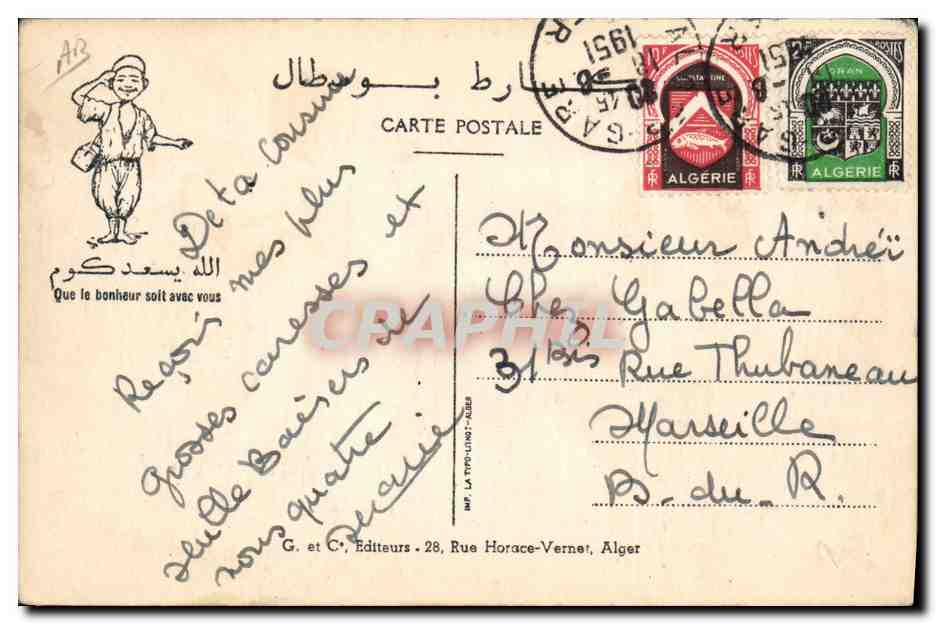 AB
كارط بوسطال
CARTE POSTALE
الله يسعدكوم
Que le bonheur soit avec vous
De ta cousine
Reçois mes plus
grosses caresses et
mille Baisers de
nous quatre
GARE
1951
GARE
1951
CONSTANTINE
RF ALGÉRIE RF
ORAN
POSTES
RF ALGÉRIE RF
Monsieur Andreï
Chez Gabella
31 Bis Rue Thubaneau
Marseille
B.-du-R.
CPAPHIL
IMP. LA TYPO-LITHO-ALGER
G. et Cⁱᵉ, Editeurs - 28, Rue Horace-Vernet, Alger